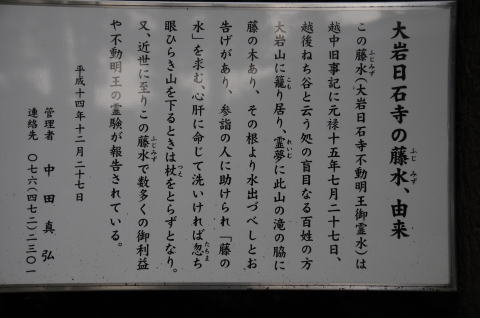 大岩日石寺の藤水、由来
この藤水(大岩日石寺不動明王御霊水)は
越中旧事記に元禄十五年七月二十七日、
越後ねち谷と云う処の盲目なる百姓の方
大岩山に籠り居り、霊夢に此山の滝の脇に
藤の木あり、その根より水出づべしとお
告げがあり、参詣の人に助けられ「藤の
水」を求む、心肝に命じて洗いければ忽ち
眼ひらき山を下るときは杖をとらずとなり。
又、近世に至りこの藤水で数多くの御利益
や不動明王の霊験が報告されている。
平成十四年十二月二十七日
管理者 中田真弘
連絡先 〇七六(四七二)二三〇一